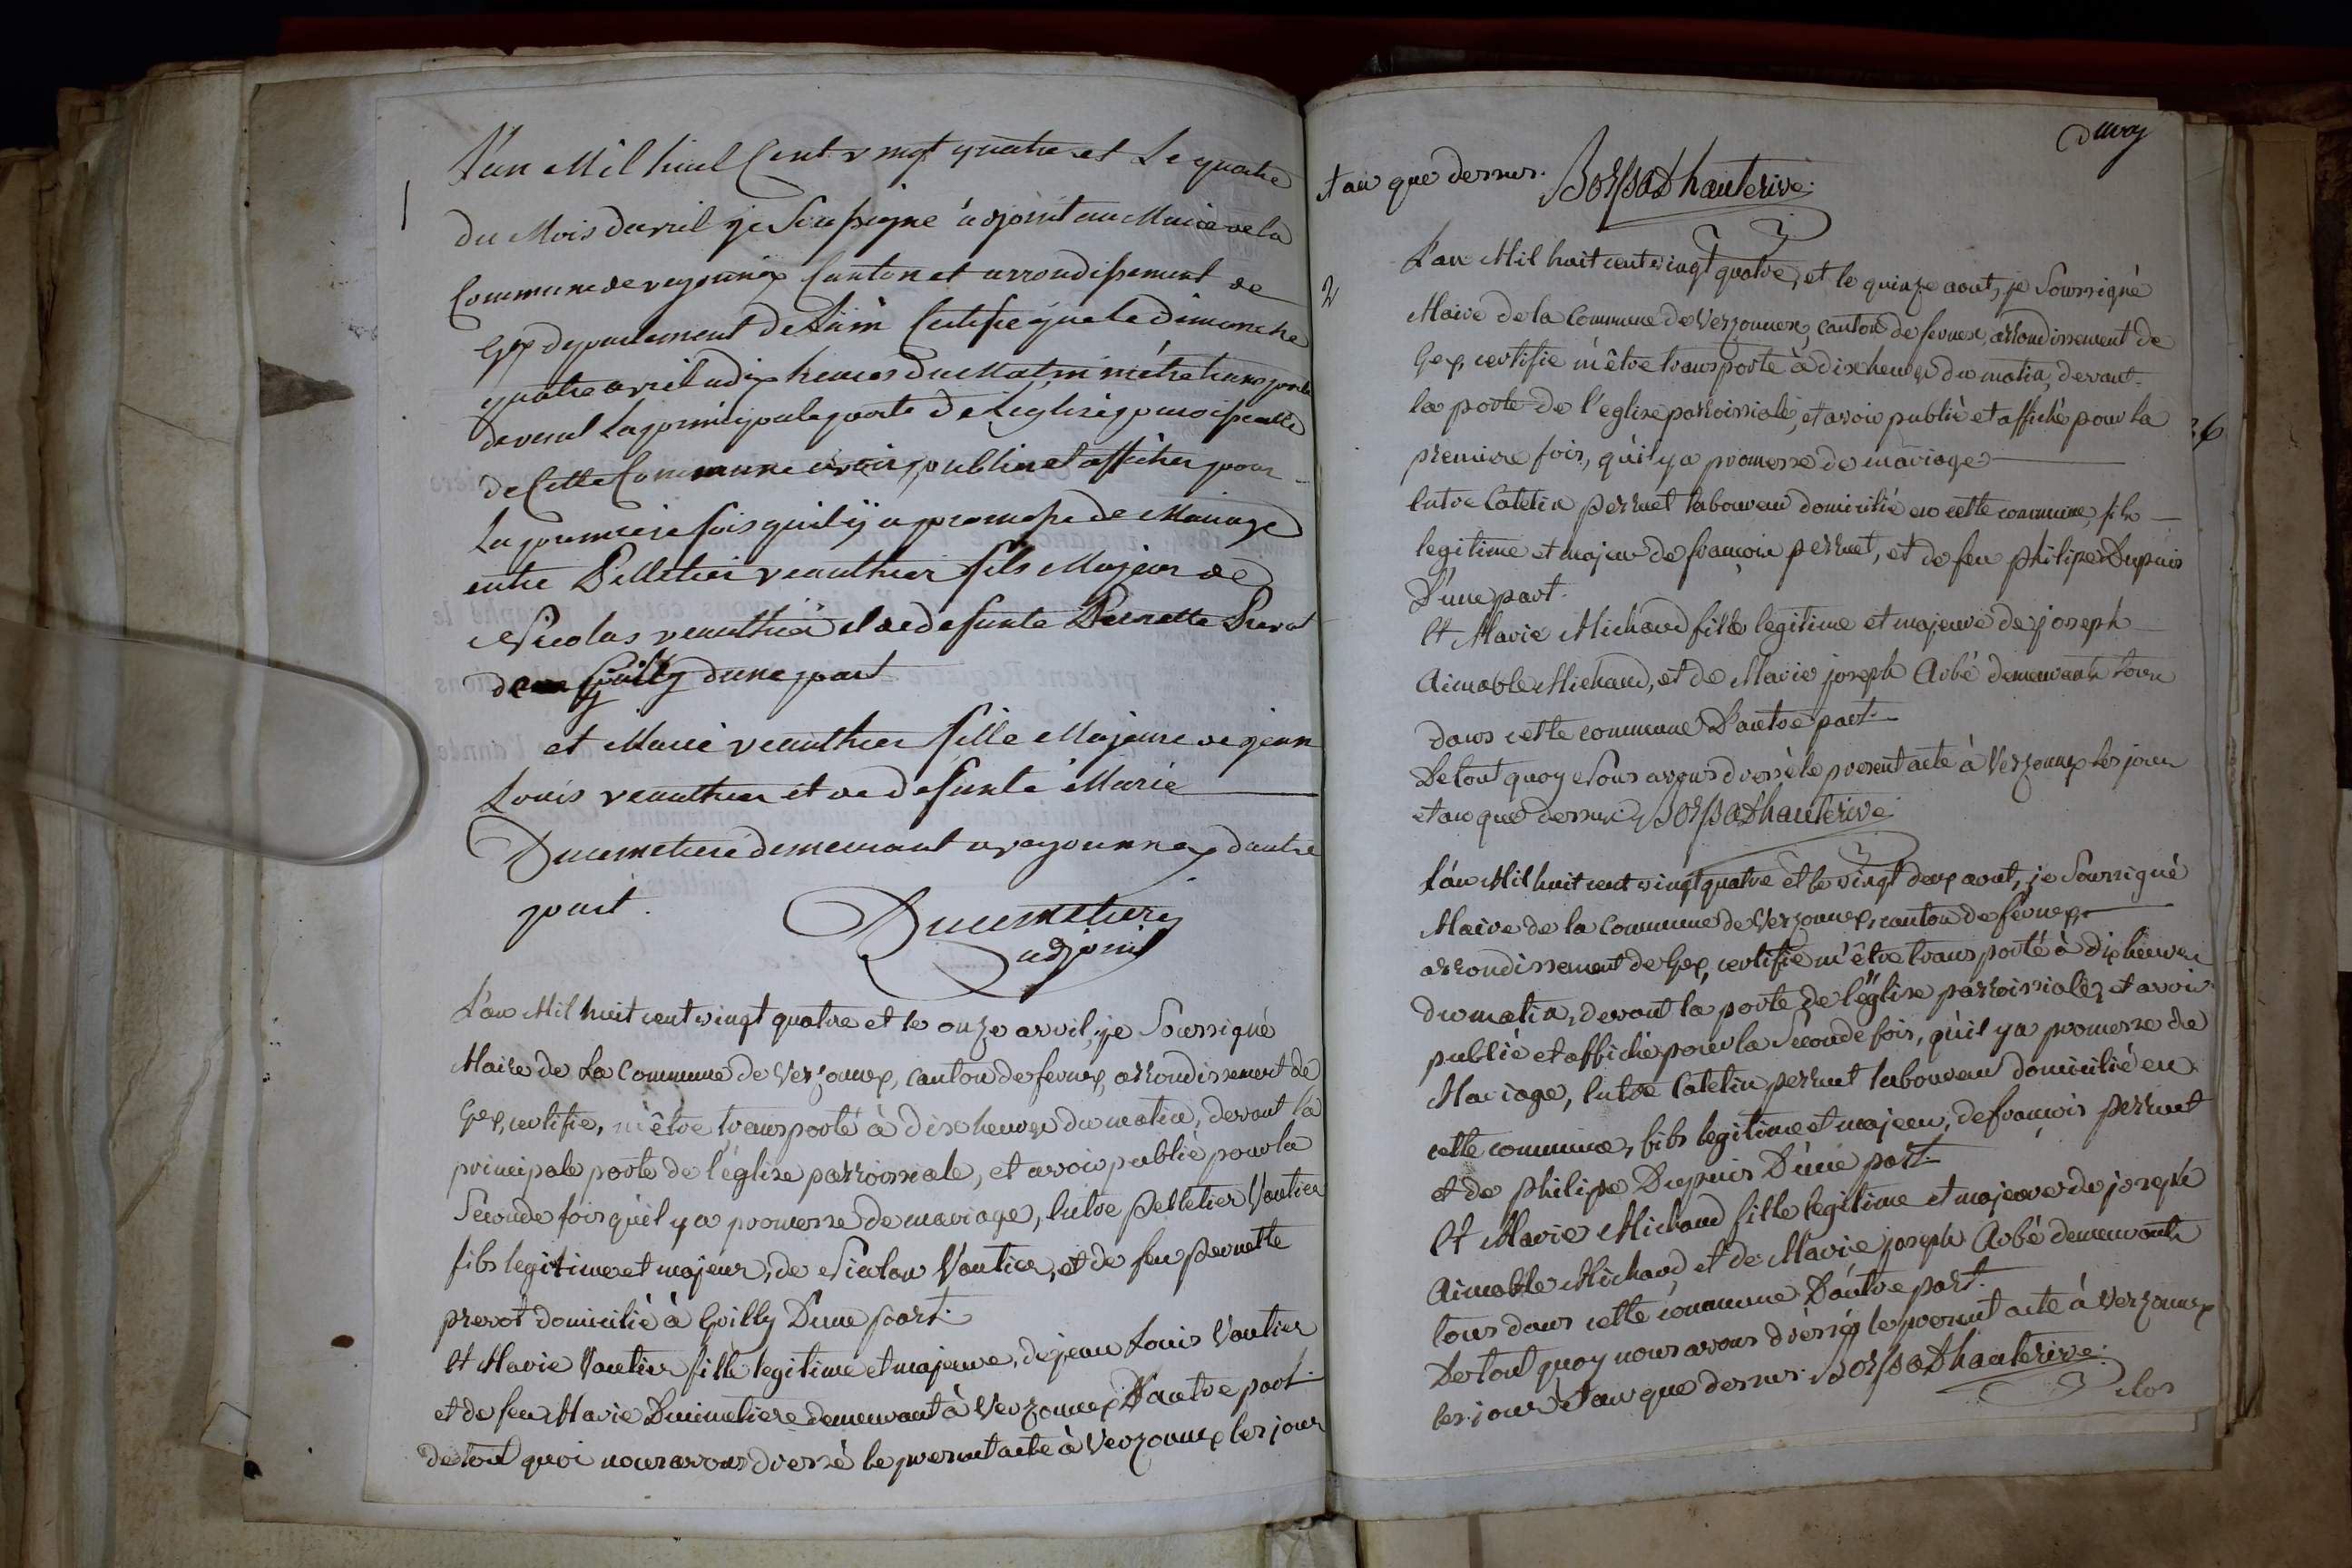 1
L'an Mil huit Cent vingt quatre et Le quatre
du Mois davril je Soussigné adjoint au Maire de la
Commune de versonnex Canton et arrondissement de
Gex departement de L'ain Certifie que le dimanche
quatre avril a dix heures du Matin m'etre transporte
devent La principale porte de Leglise paroissialle
de Cette Commune avoir publier et afficher pour
La premiere fois quil ÿ a promesse de Mariage
entre Pelletier veauthier fils Majeur de
Nicolas veauthier et de defunte Pernette Prevot
de Grilly dune part
et Marie veauthier fille Majeure de jean
Louis veauthier et de defunte Marie
Ducimetiere demeurant a versonnex dautre
part.
Ducimetiere
adjoint
L'an Mil huit cent vingt quatre et le onze avril, je Soussigné
Maire de La Commune de Versonnex, canton de fernex, arrondissement de
Gex, certifie, m'être transporté à dix heures du matin, devant la
principale porte de l'église parroissiale, et avoir publié pour la
Seconde fois qu'il y a promesse de mariage, Entre Pelletier Vautier
fils legitime et majeur, de Nicolas Vautier, et de feu pernette
prevot domicilié à Grilly D'une part.
Et Marie Vautier fille legitime et majeure, de jean Louis Vautier
et de feu Marie Ducimetiere demeurant à Versonnex D'autre part.
de tout quoi nous avons dressé le present acte à Versonnex les jour
Duvoy
et an que dessus. Borssat d'hauterive
2
L'an Mil huit cent vingt quatre, et le quinze aout, je Soussigné
Maire de la Commune de Versonnex, canton de fernex, arrondissement de
Gex, certifie m'être transporté à dix heures du matin, devant
la porte de l'eglise parroissiale, et avoir publié et affiché pour la
premiere fois, qu'il y a promesse de mariage
Entre Catelin perruet laboureur domicilié en cette commune, fils
legitime et majeur de françois perruet, et de feu philipe Dupuis
D'une part.
Et Marie Michaud fille legitime et majeure de joseph
Aimable Michaud, et de Marie joseph Arbé demeurants tous
dans cette commune D'autre part.
De tout quoy Nous avons dressé le present acte à Versonnex les jour
et an que dessus Borssat d'hauterive
L'an Mil huit cent vingt quatre et le vingt deux aout, je Soussigné
Maire de la Commune de Versonnex, canton de fernex,
arrondissement de Gex, certifie m'être transporté à dix heures
du matin, devant la porte de l'église parroissiale, et avoir
publié et affiché pour la Seconde fois, qu'il y a promesse de
Mariage, Entre Catelin perruet laboureur domicilié en
cette commune, fils legitime et majeur, de françois perruet
et de philipe Dupuis D'une part.
Et Marie Michaud fille legitime et majeure de joseph
Aimable Michaud et de Marie joseph Arbé demeurants
tous dans cette commune D'autre part.
De tout quoy nous avons dressé le present acte à Versonnex
les jour et an que dessus. Borssat d'hauterive.
clos